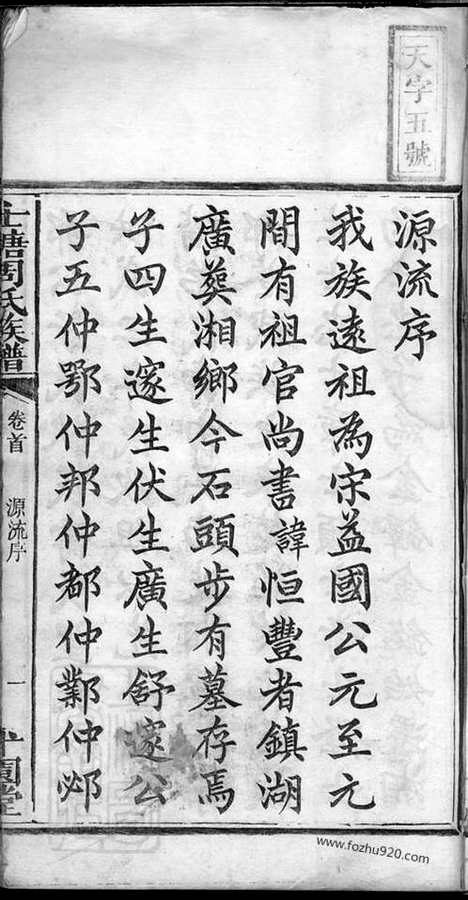 天字五號
源流序
我族遠祖為宋益國公元至元
間有祖官尚書諱恒豐者鎮湖
廣葬湘鄉今石頭步有墓存焉
子四生邃生伏生廣生舒邃公
子五仲鄂仲邦仲都仲鄴仲邲
周氏族譜
卷首
源流序
一
www.fozhu920.com